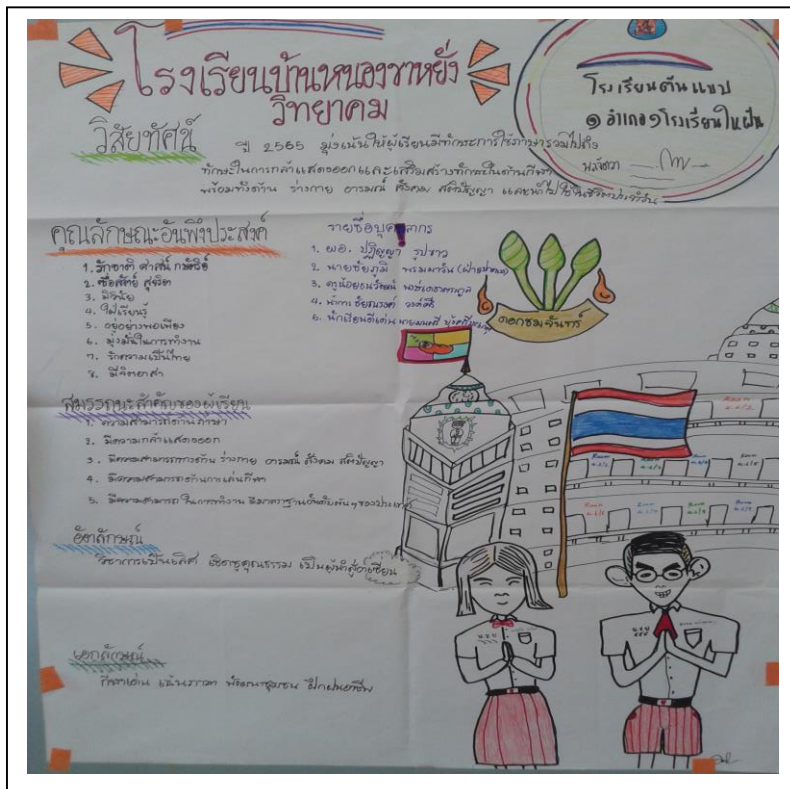 โรงเรียนบ้านหนองขาหยั่ง
วิทยาคม
โรงเรียนต้นแบบ
๑ อำเภอ ๑ โรงเรียนในฝัน
วิสัยทัศน์
ปี 2565 มุ่งเน้นให้ผู้เรียนมีทักษะการใช้ภาษารวมไปถึง
ทักษะในการกล้าแสดงออกและเสริมสร้างทักษะในด้านกีฬา
พร้อมทั้งด้าน ร่างกาย อารมณ์ สังคม สติปัญญา และนำไปใช้ในชีวิตประจำวัน
คุณลักษณะอันพึงประสงค์
1. รักชาติ ศาสน์ กษัตริย์
2. ซื่อสัตย์ สุจริต
3. มีวินัย
4. ใฝ่เรียนรู้
5. อยู่อย่างพอเพียง
6. มุ่งมั่นในการทำงาน
7. รักความเป็นไทย
8. มีจิตอาสา
รายชื่อบุคลากร
1. ผอ. ปฏิญญา รูปขาว
2. นายชัยภูมิ
3. ครูน้อย
4.
5. นักเรียนดีเด่น
ดอกชมจันทร์
สมรรถนะสำคัญของผู้เรียน
1. ความสามารถด้านภาษา
2. มีความกล้าแสดงออก
3. มีความสามารถทางด้าน ร่างกาย อารมณ์ สังคม สติปัญญา
4. มีความสามารถด้านการเล่นกีฬา
5. มีความสามารถในการทำงาน มีมาตรฐานอันดับต้นๆของประเทศ
อัตลักษณ์
วิชาการเป็นเลิศ เชิดชูคุณธรรม เป็นผู้นำสู่อาเซียน
เอกลักษณ์
กีฬาเด่น เน้นภาษา พัฒนาชุมชน ฝึกฝนอาชีพ